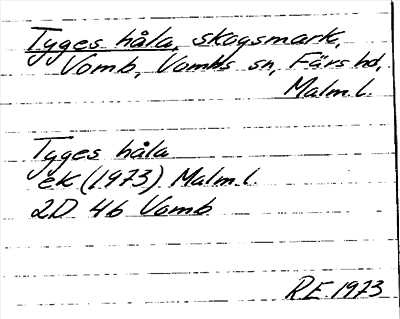 Tyges håla, skogsmark,
Vomb, Vombs sn, Färs hd,
Malm.l.
Tyges håla
ek (1973) Malm.l.
2D 4b Vomb
R.E. 1973